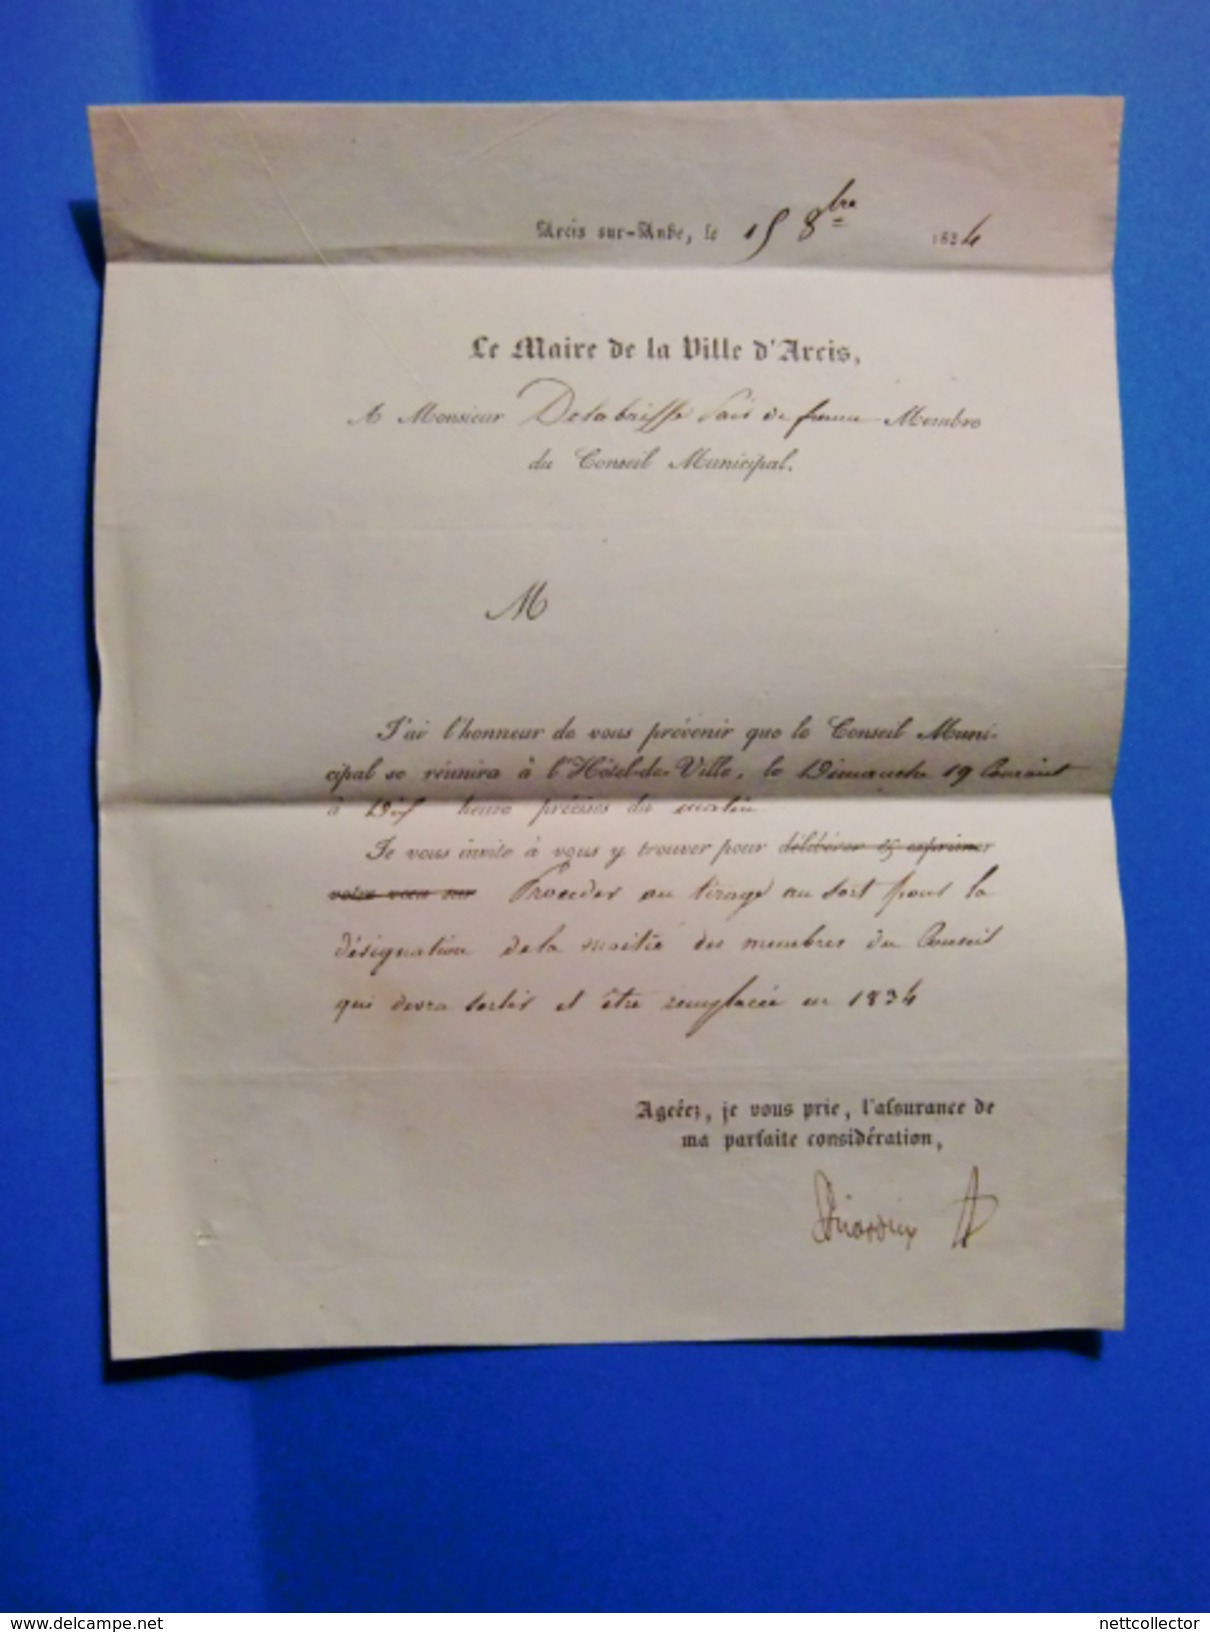 Arcis sur-Aube, le 15 8bre 1834
Le Maire de la Ville d'Arcis,
A Monsieur Delabriffe Pair de france Membre
du Conseil Municipal.
M
J'ai l'honneur de vous prévenir que le Conseil Muni-
cipal se réunira à l'Hôtel-de-Ville, le Dimanche 19 Courant
à Dix heure précises du matin
Je vous invite à vous y trouver pour délibérer & exprimer
votre vœu sur Proceder au tirage au sort pour la
désignation de la moitié des membres du Conseil
qui devra sortir et être remplacée en 1834
Agréez, je vous prie, l'assurance de
ma parfaite considération,
www.delcampe.net
nettcollector